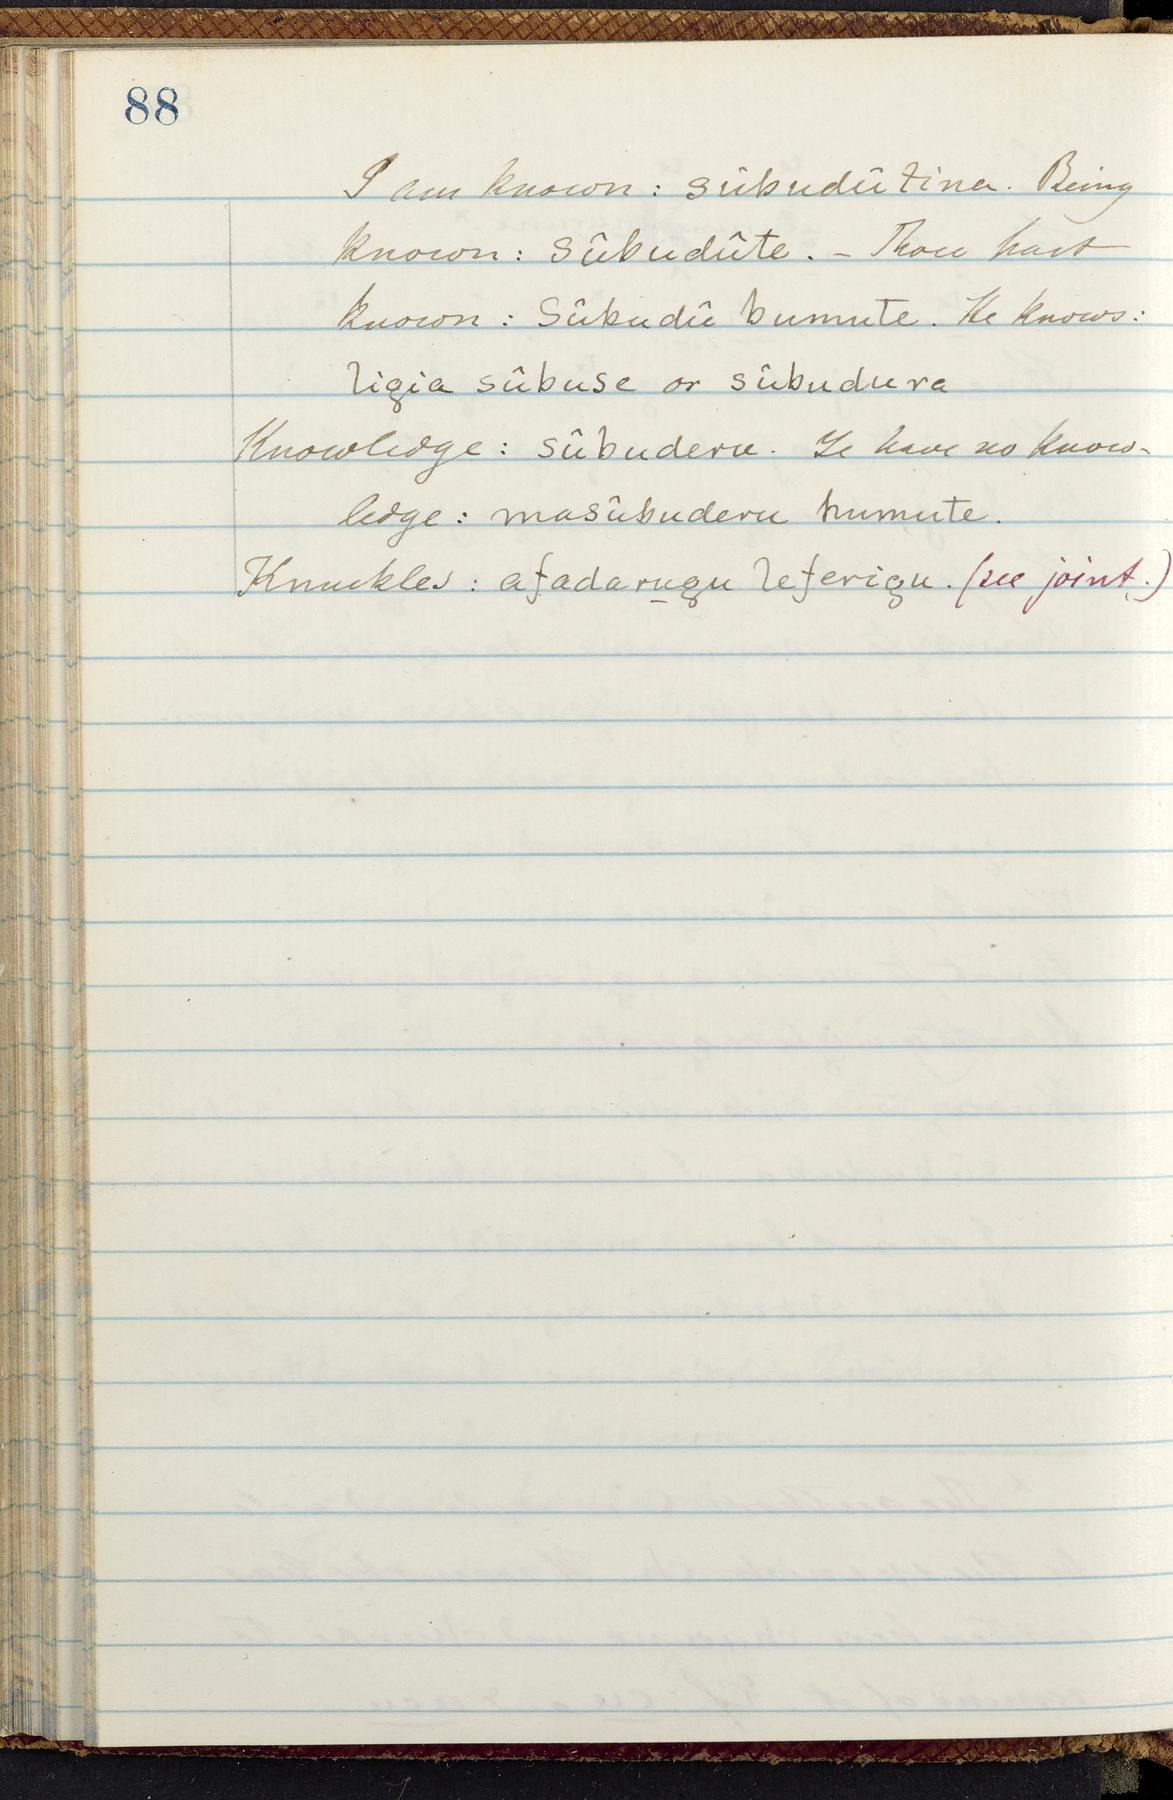 88
I am known : sûbudûtina. Being
known : sûbudûte. – Thou hast
known : Sûbudû bumute. He knows :
ligia sûbuse or sûbudura
Knowledge : sûbuderu. Ye have no know-
ledge : masûbuderu humute.
Knuckles : afadarugu leferigu. (see joint.)